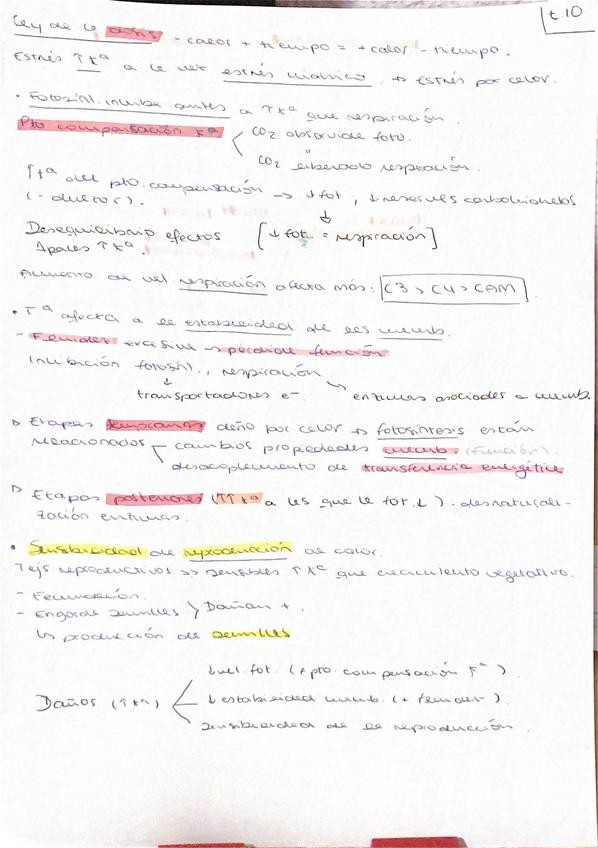 t.10
Ley de la dosis - calor + tiempo = + calor - tiempo.
Estrés ↑tª a la vez estrés hídrico. → Estrés por calor.
• Fotosínt. inhibe antes a ↑tª que respiración.
Pto compensación tª < CO2 absorvido foto.
CO2 " liberado respiración.
↑tª del pto. compensación → ↓fot, ↓reservas carbohidratos
(- dulzor).
Desequilibrio efectos [↓fot. = respiración]
↑tª.
Aumento de vel respiración afecta más: C3 > C4 > CAM
• Tª afecta a la estabilidad de las memb.
- Fluidez excesiva → pérdida función.
Inhibición fotosínt., respiración
transportadores e- enzimas asociadas a memb.
▷ Etapas tempranas daño por calor → fotosíntesis están
relacionados cambios propiedades memb. (función).
desacoplamiento de transferencia energética
▷ Etapas posteriores (↑↑tª a las que la fot.↓). desnaturali-
zación enzimas.
• Sensibilidad de reproducción al calor.
Tejs reproductivos >> sensibles ↑tª que crecimiento vegetativo.
- Fecundación.
- Engorde semillas > Dañan +.
↳ producción de semillas
↓vel. fot. (+ pto. compensación tª).
Daños (↑tª) ↓estabilidad memb. (+ fluidez).
sensibilidad de la reproducción.